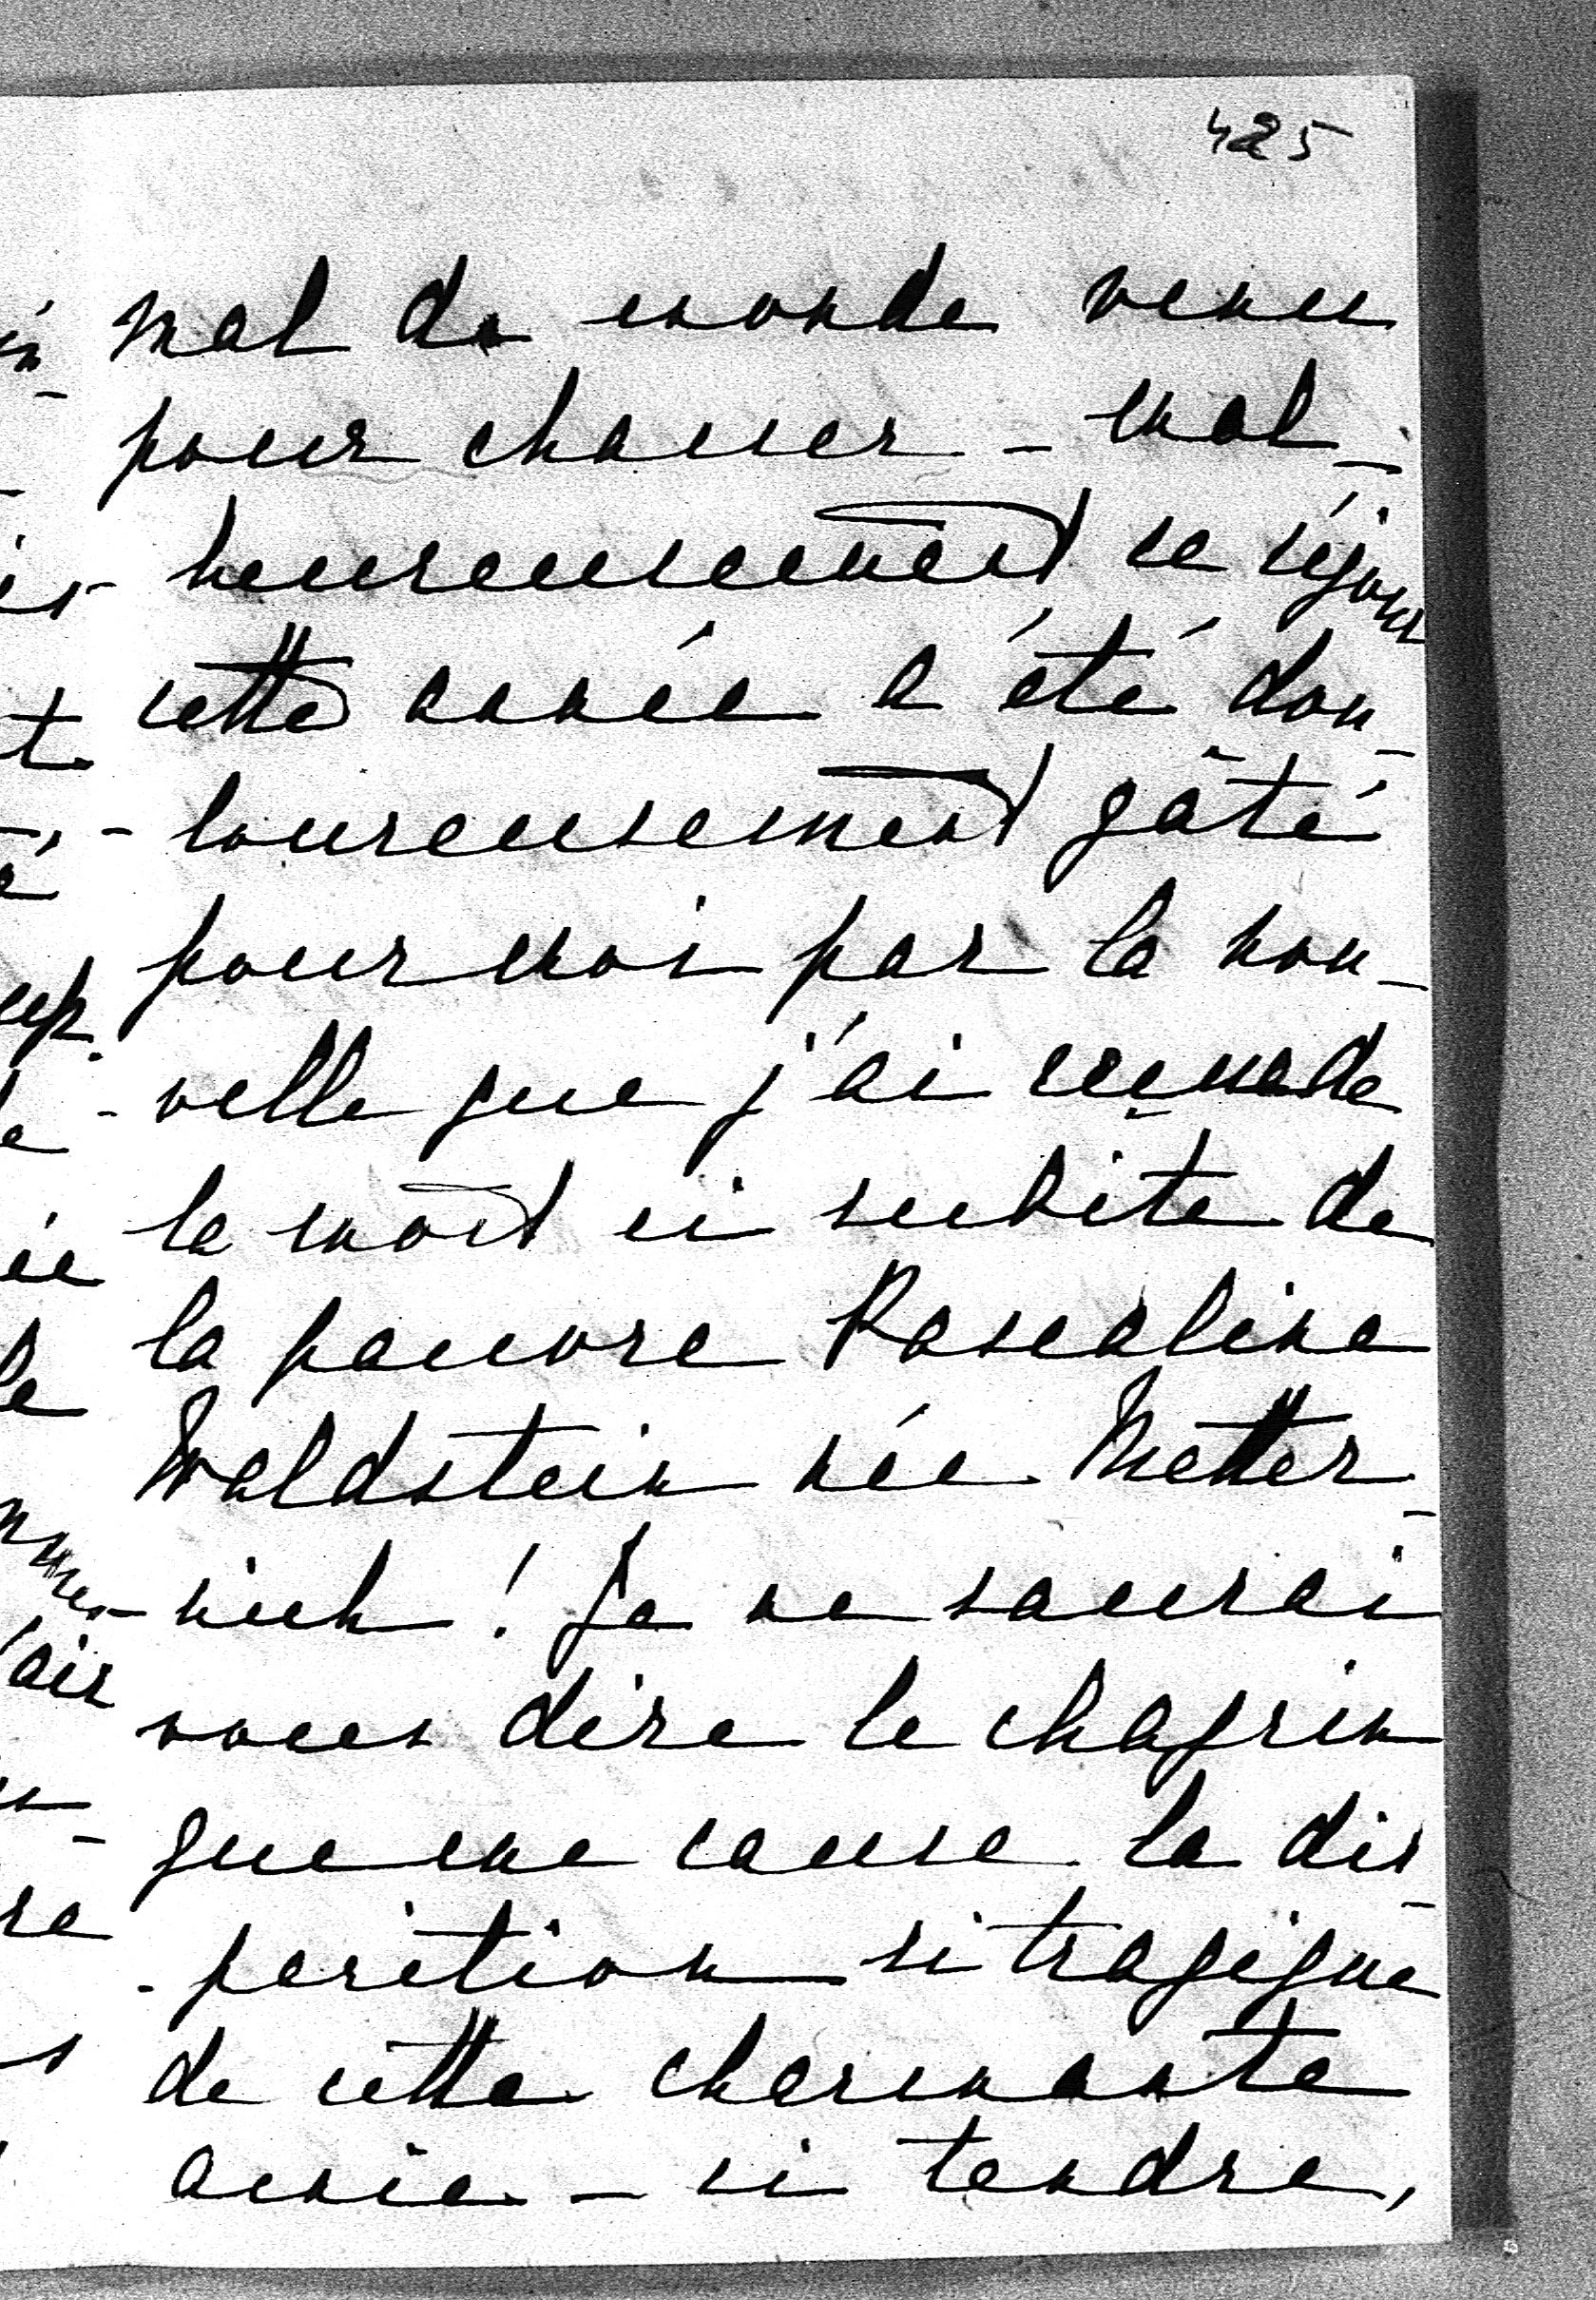 425
mal de monde venu
pour chasser - mal-
heureusement ce séjour
cette année a été dou-
-loureusement gâté
pour moi par la nou-
-velle que j'ai reçue de
la mort si subite de
la pauvre Rosealine
Waldstein née Metter-
-nich! Je ne saurai
vous dire le chagrin
que me cause la dis-
-parition si tragique
de cette charmante
amie - si tendre,